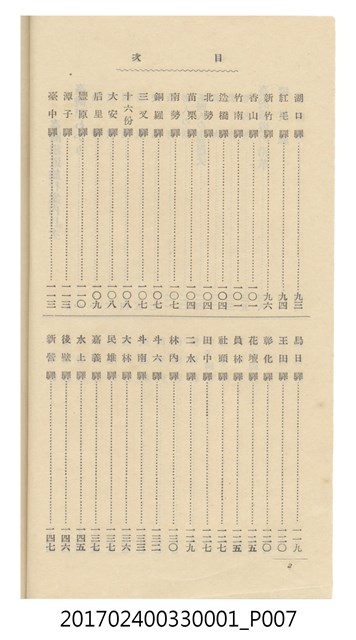 目次
湖口驛……九三
紅毛驛……九四
新竹驛……九六
香山驛……一〇一
竹南驛……一〇一
造橋驛……一〇四
北勢驛……一〇四
苗栗驛……一〇四
南勢驛……一〇七
銅鑼驛……一〇七
三叉驛……一〇七
十六份驛……一〇八
大安驛……一〇八
后里驛……一〇九
豐原驛……一一〇
潭子驛……一一三
臺中驛……一一三
烏日驛……一一九
王田驛……一二〇
彰化驛……一二〇
花壇驛……一二五
員林驛……一二五
社頭驛……一二七
田中驛……一二七
二水驛……一二九
林內驛……一三〇
斗六驛……一三二
斗南驛……一三三
大林驛……一三六
民雄驛……一三七
嘉義驛……一三七
水上驛……一四五
後壁驛……一四六
新營驛……一四七
201702400330001_P007